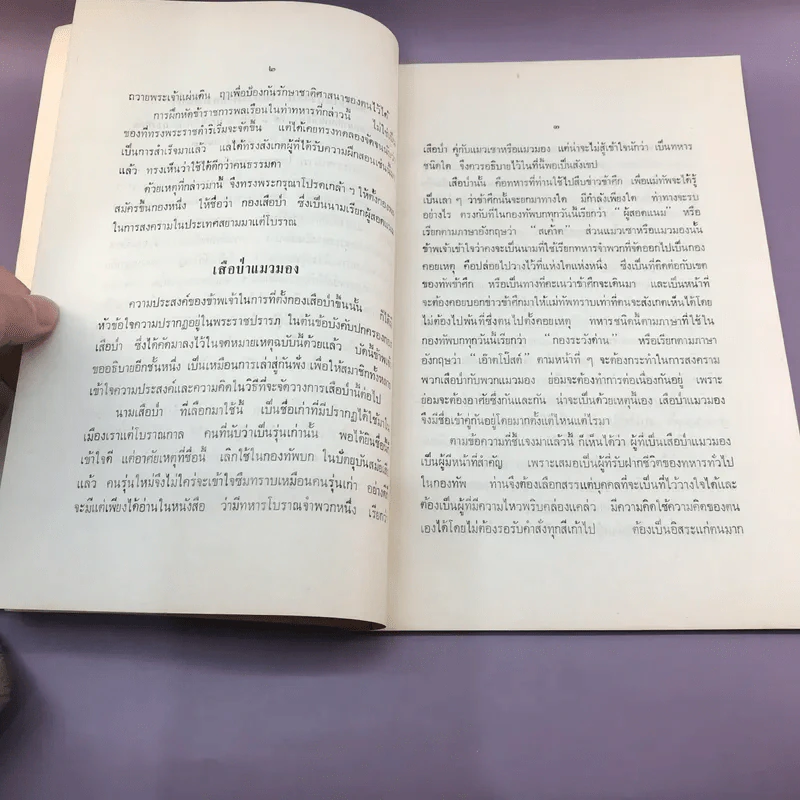 ๒
ถวายพระเจ้าแผ่นดิน ฤๅเพื่อป้องกันรักษาชาติศาสนาของตนไว้ได้
การฝึกหัดข้าราชการพลเรือนในท่าทหารที่กล่าวนี้ ไม่ใช่เป็น
ของที่ทรงพระราชดำริเริ่มจะจัดขึ้น แต่ได้เคยทรงทดลองจัด
เป็นการสำเร็จมาแล้ว แลได้ทรงสังเกตผู้ที่ได้รับความฝึกสอนเช่นนี้
แล้ว ทรงเห็นว่าใช้ได้ดีกว่าคนธรรมดา
ด้วยเหตุที่กล่าวมานี้ จึงทรงพระกรุณาโปรดเกล้า ๆ ให้ตั้งกอง
สมัครขึ้นกองหนึ่ง ให้ชื่อว่า กองเสือป่า ซึ่งเป็นนามเรียกผู้สอดแนม
ในการสงครามในประเทศสยามมาแต่โบราณ
เสือป่าแมวมอง
ความประสงค์ของข้าพเจ้าในการที่ตั้งกองเสือป่าขึ้นนั้น ก็ได้มี
หัวข้อใจความปรากฏอยู่ในพระราชปรารภ ในต้นข้อบังคับปกครอง
เสือป่า ซึ่งได้คัดมาลงไว้ในจดหมายเหตุฉบับนี้ด้วยแล้ว บัดนี้ข้าพเจ้า
ขออธิบายอีกชั้นหนึ่ง เป็นเหมือนการเล่าสู่กันฟัง เพื่อให้สมาชิกทั้งหลาย
เข้าใจความประสงค์และความคิดในวิธีที่จะจัดวางการเสือป่านี้ต่อไป
นามเสือป่า ที่เลือกมาใช้นี้ เป็นชื่อเก่าที่มีปรากฏได้ใช้มาใน
เมืองเราแต่โบราณกาล คนที่นับว่าเป็นรุ่นเก่านั้น พอได้ยินชื่อนี้ก็
เข้าใจดี แต่อาศัยเหตุที่ชื่อนี้ เลิกใช้ในกองทัพบก ในปัตยุบันสมัยเสีย
แล้ว คนรุ่นใหม่จึงไม่ใคร่จะเข้าใจซึมทราบเหมือนคนรุ่นเก่า อย่างดีก็
จะมีแต่เพียงได้อ่านในหนังสือ ว่ามีทหารโบราณจำพวกหนึ่ง เรียกว่า
๓
เสือป่า คู่กับแมวเซาหรือแมวมอง แต่น่าจะไม่สู้เข้าใจนักว่า เป็นทหาร
ชนิดใด จึงควรอธิบายไว้ในที่นี้พอเป็นสังเขป
เสือป่านั้น คือทหารที่ท่านใช้ไปสืบข่าวข้าศึก เพื่อแม่ทัพจะได้รู้
เป็นเลา ๆ ว่าข้าศึกนั้นจะยกมาทางใด มีกำลังเพียงใด ท่าทางจะรบ
อย่างไร ตรงกับที่ในกองทัพบกทุกวันนี้เรียกว่า "ผู้สอดแนม" หรือ
เรียกตามภาษาอังกฤษว่า "สเก๊าต" ส่วนแมวเซาหรือแมวมองนั้น
ข้าพเจ้าเข้าใจว่าคงจะเป็นนามที่ใช้เรียกทหารจำพวกที่จัดออกไปเป็นกอง
คอยเหตุ คือปล่อยไปวางไว้ที่แห่งใดแห่งหนึ่ง ซึ่งเป็นที่ติดต่อกับเขต
ของทัพข้าศึก หรือเป็นทางที่คะเนว่าข้าศึกจะเดินมา และเป็นหน้าที่
จะต้องคอยบอกข่าวข้าศึกมาให้แม่ทัพทราบเท่าที่ตนจะสังเกตเห็นได้โดย
ไม่ต้องไปพ้นที่ซึ่งตนไปตั้งคอยเหตุ ทหารชนิดนี้ตามภาษาที่ใช้ใน
กองทัพบกทุกวันนี้เรียกว่า "กองระวังด่าน" หรือเรียกตามภาษา
อังกฤษว่า "เอ๊าตโป๊สต์" ตามหน้าที่ ๆ จะต้องกระทำในการสงคราม
พวกเสือป่ากับพวกแมวมอง ย่อมจะต้องทำการต่อเนื่องกันอยู่ เพราะ
ย่อมจะต้องอาศัยซึ่งกันและกัน น่าจะเป็นด้วยเหตุนี้เอง เสือป่าแมวมอง
จึงมีชื่อเข้าคู่กันอยู่โดยมากตั้งแต่ไหนแต่ไรมา
ตามข้อความที่ชี้แจงมาแล้วนี้ ก็เห็นได้ว่า ผู้ที่เป็นเสือป่าแมวมอง
เป็นผู้มีหน้าที่สำคัญ เพราะเสมอเป็นผู้ที่รับฝากชีวิตของทหารทั่วไป
ในกองทัพ ท่านจึงต้องเลือกสรรแต่บุคคลที่จะเป็นที่ไว้วางใจได้และ
ต้องเป็นผู้ที่มีความไหวพริบคล่องแคล่ว มีความคิดใช้ความคิดของตน
เองได้โดยไม่ต้องรอรับคำสั่งทุกสี่เก้าไป ต้องเป็นอิสระแก่ตนมาก